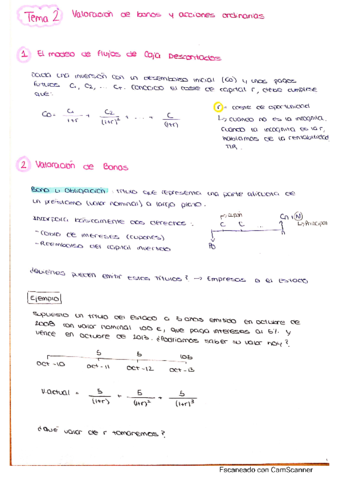 Tema 2 Valoración de bonos y acciones ordinarias
1 El modelo de Flujos de Caja Descontados
Dada una inversión con un desembolso inicial (C0) y unos pagos
futuros C1, C2, ... Cn. Conocido el coste de capital r, debe cumplirse
que:
C0 = C1/(1+r) + C2/(1+r)² + ... + C/(1+r)
r = coste de oportunidad
↳ cuando no es la incógnita.
Cuando la incógnita es la r,
hablamos de la rentabilidad
TIR.
2 Valoración de Bonos
Bono u obligación: título que representa una parte alícuota de
un préstamo (valor nominal) a largo plazo.
Incorpora básicamente dos derechos:
- Cobro de intereses (cupones)
- Reembolso del capital invertido
cupón
C C ... Cn + N
↳ Principal
P0
¿Quiénes pueden emitir estos títulos? → Empresas o el Estado
Ejemplo
Supuesto un título del Estado a 5 años emitido en octubre de
2008 con valor nominal 100 €, que paga intereses al 5% y
vence en octubre de 2013. ¿Podríamos saber su valor hoy?
5 5 105
oct-10 oct-11 oct-12 oct-13
V.actual = 5/(1+r) + 5/(1+r)² + 5/(1+r)³
¿Qué valor de r tomaremos?
Escaneado con CamScanner